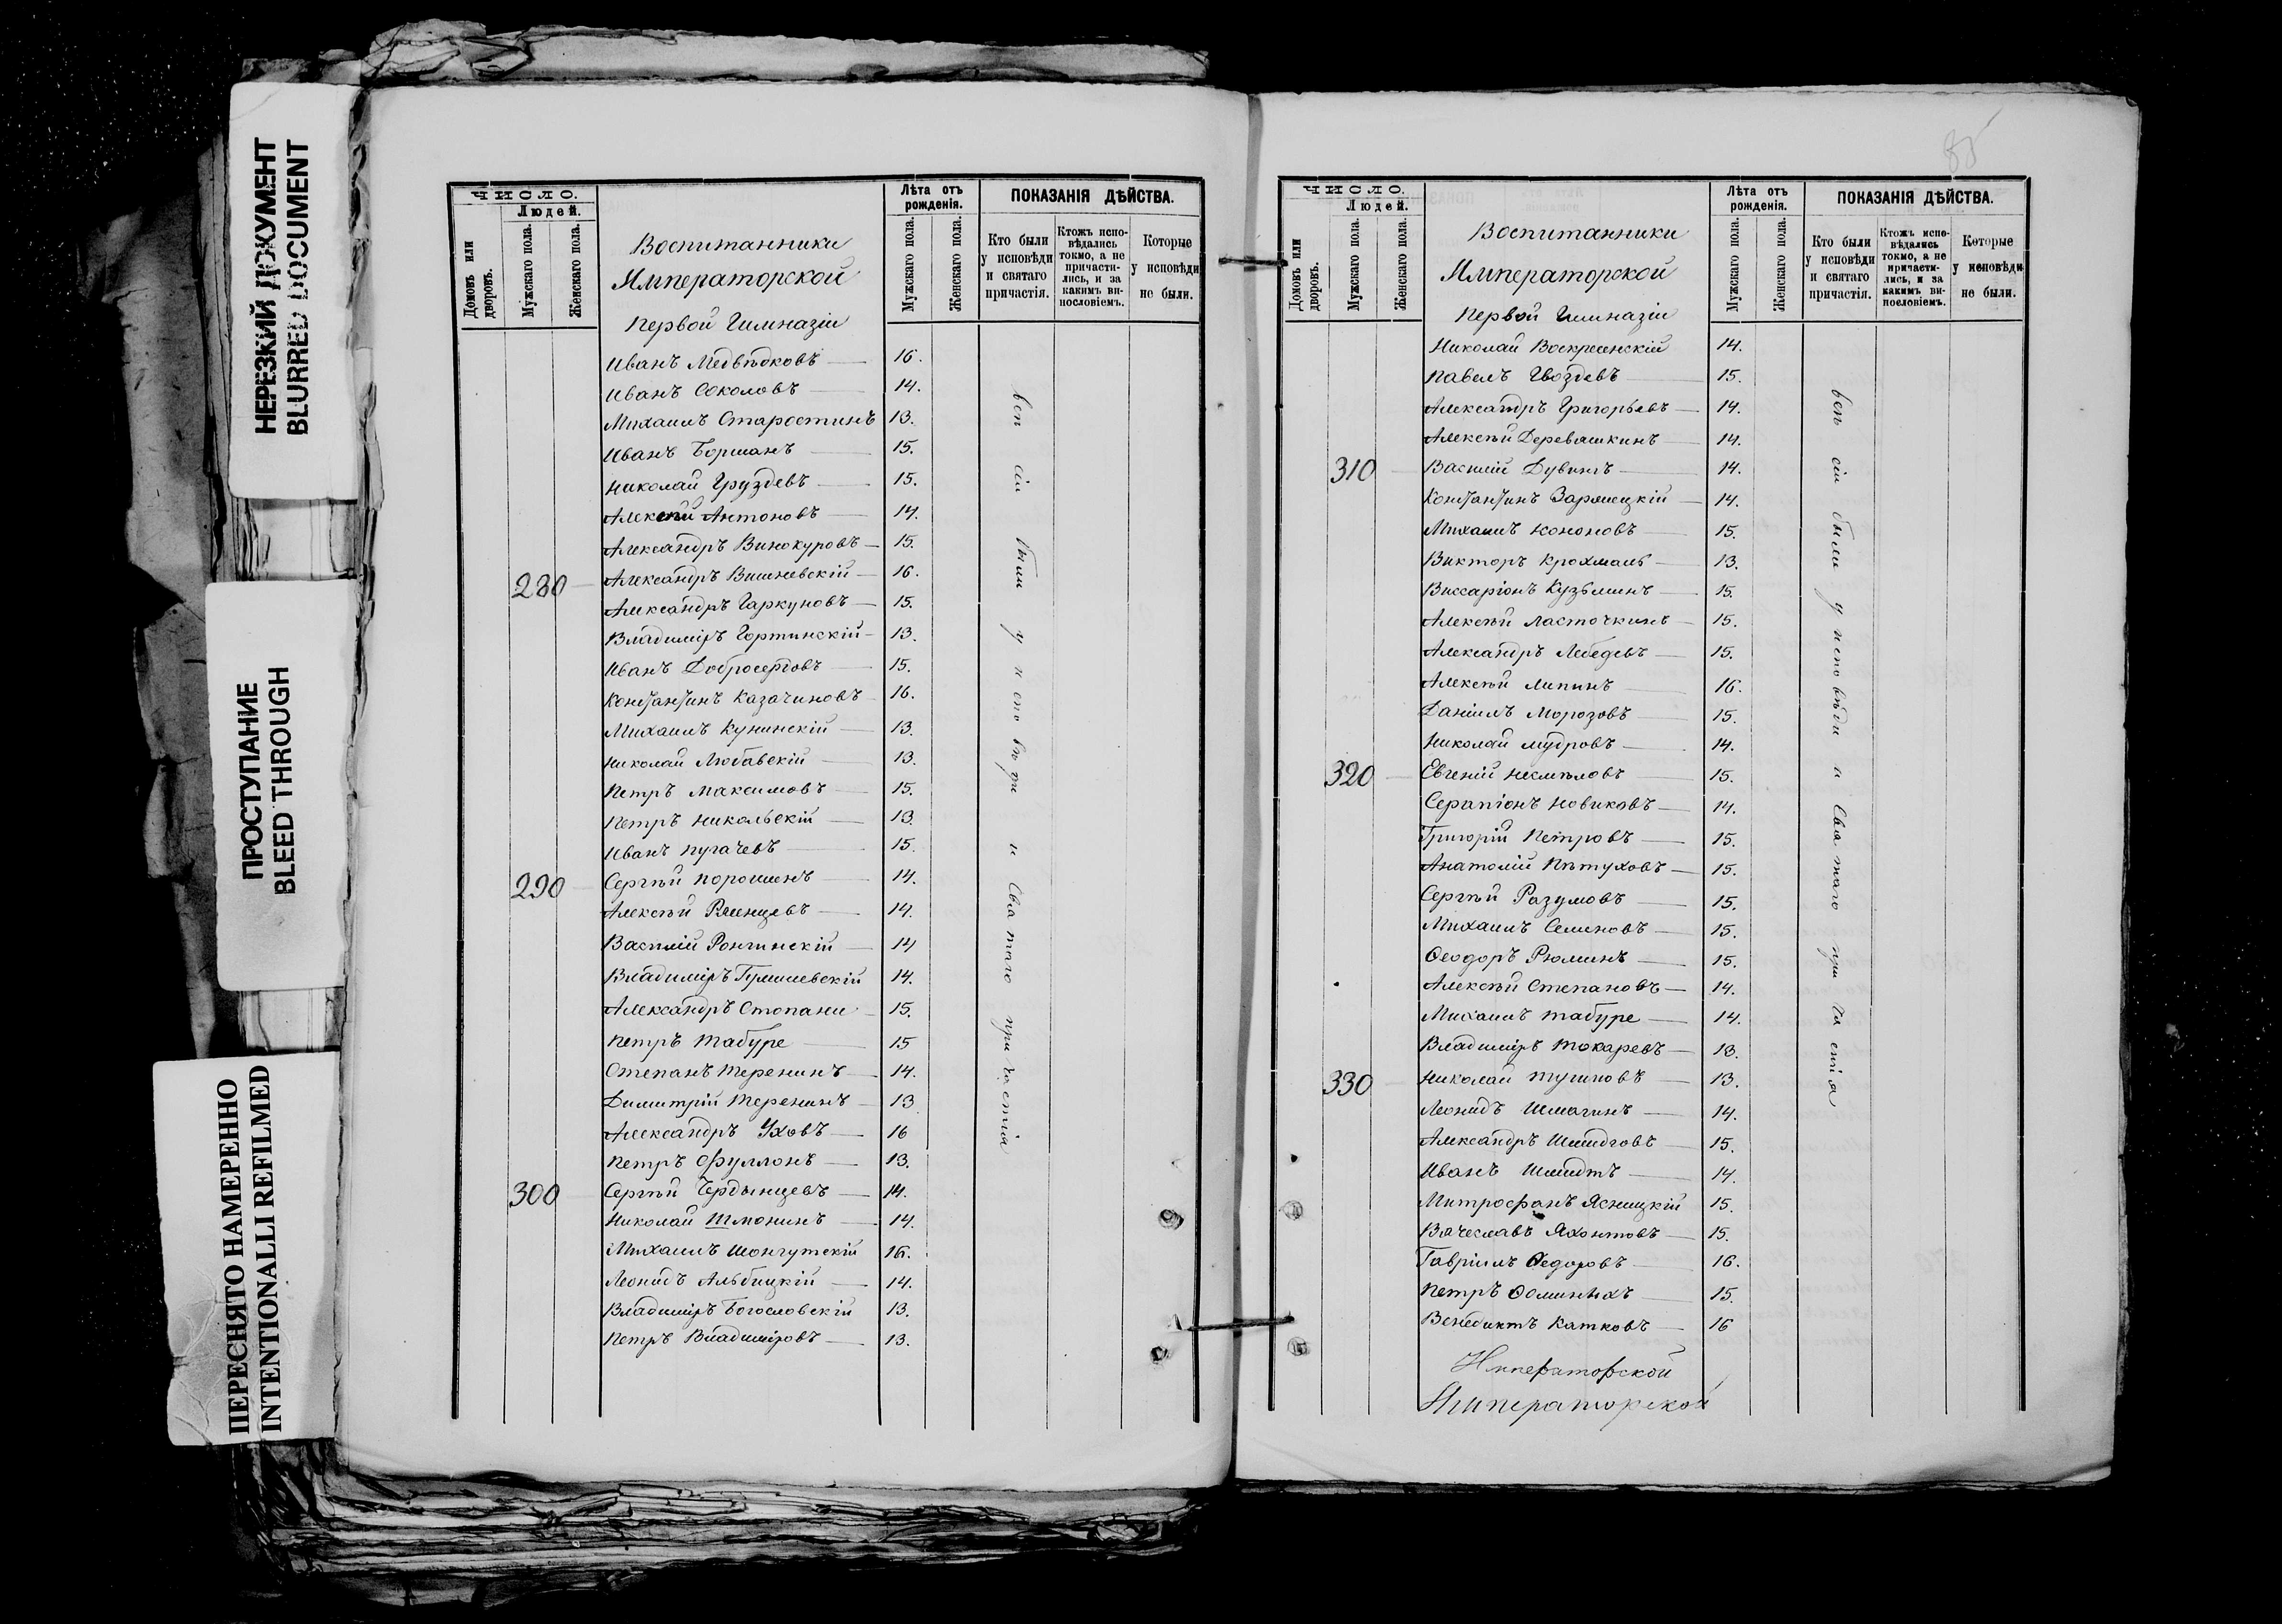 НЕРЕЗКИЙ ДОКУМЕНТ
BLURRED DOCUMENT
ПРОСТУПАНИЕ
BLEED THROUGH
ПЕРЕСНЯТО НАМЕРЕННО
INTENTIONALLI REFILMED
ЧИСЛО.
Людей.
Домовъ или дворовъ.
Мужскаго пола.
Женскаго пола.
Воспитанники
Императорской
Первой Гимназіи
Лѣта отъ рожденія.
Мужскаго пола.
Женскаго пола.
ПОКАЗАНІЯ ДѢЙСТВА.
Кто были у исповѣди и святаго причастія.
Ктожъ исповѣдались токмо, а не причастились, и за какимъ винословіемъ.
Которые у исповѣди не были.
Иванъ Медвѣдковъ 16.
Иванъ Соколовъ 14.
Михаилъ Старостинъ 13.
Иванъ Борманъ 15.
Николай Груздевъ 15.
Алексѣй Антоновъ 14.
Александръ Винокуровъ 15.
280 Александръ Вишневскій 16.
Александръ Гаркуновъ 15.
Владиміръ Гортинскій 13.
Иванъ Добросердовъ 15.
Константинъ Казачиновъ 16.
Михаилъ Кунинскій 13.
Николай Любавскій 13.
Петръ Максимовъ 15.
Петръ Никольскій 13.
Иванъ Пугачевъ 15.
290 Сергѣй Порошенъ 14.
Алексѣй Раенцевъ 14.
Василій Ронгинскій 14
Владиміръ 14.
Александръ Стопани 15.
Петръ Табуре 15
Степанъ Теренинъ 14.
Димитрій Теренинъ 13
Александръ Уховъ 16
Петръ Фуллонъ 13.
300 Сергѣй Чердынцевъ 14.
Николай Шмонинъ 14.
Михаилъ Шонгутскій 16.
Леонидъ Альбицкій 14.
Владиміръ Богословскій 13.
Петръ Владиміровъ 13.
всѣ сіи были у исповѣди и Святаго причастія
85
ЧИСЛО.
Людей.
Домовъ или дворовъ.
Мужскаго пола.
Женскаго пола.
Воспитанники
Императорской
Первой Гимназіи
Лѣта отъ рожденія.
Мужскаго пола.
Женскаго пола.
ПОКАЗАНІЯ ДѢЙСТВА.
Кто были у исповѣди и святаго причастія.
Ктожъ исповѣдались токмо, а не причастились, и за какимъ винословіемъ.
Которые у исповѣди не были.
Николай Воскресенскій 14.
Павелъ Гвоздевъ 15.
Александръ Григорьевъ 14.
Алексѣй Деревяшкинъ 14.
310 Василій 14.
Константинъ Зарницкій 14.
Михаилъ Кононовъ 15.
Викторъ Крохмаль 13.
Виссаріонъ Кузьминъ 15.
Алексѣй Ласточкинъ 15.
Александръ Лебедевъ 15.
Алексѣй Липинъ 16.
Даніилъ Морозовъ 15.
Николай Мудровъ 14.
320 Евгеній Несмѣловъ 15.
Серапіонъ Новиковъ 14.
Григорій Петровъ 15.
Анатолій Пѣтуховъ 15.
Сергѣй Разумовъ 15.
Михаилъ Семеновъ 15.
Ѳеодоръ Рюминъ 15.
Алексѣй Степановъ 14.
Михаилъ Табуре 14.
Владиміръ Токаревъ 13.
330 Николай Тушновъ 13.
Леонидъ Шмагинъ 14.
Александръ 15.
Иванъ Шмидтъ 14.
Митрофанъ Ясницкій 15.
Вячеславъ Яхонтовъ 15.
Гавріилъ Ѳедоровъ 16.
Петръ Ѳоминыхъ 15.
Венедиктъ Катковъ 16
Императорской
Императорской
всѣ сіи были у исповѣди и Святаго причастія